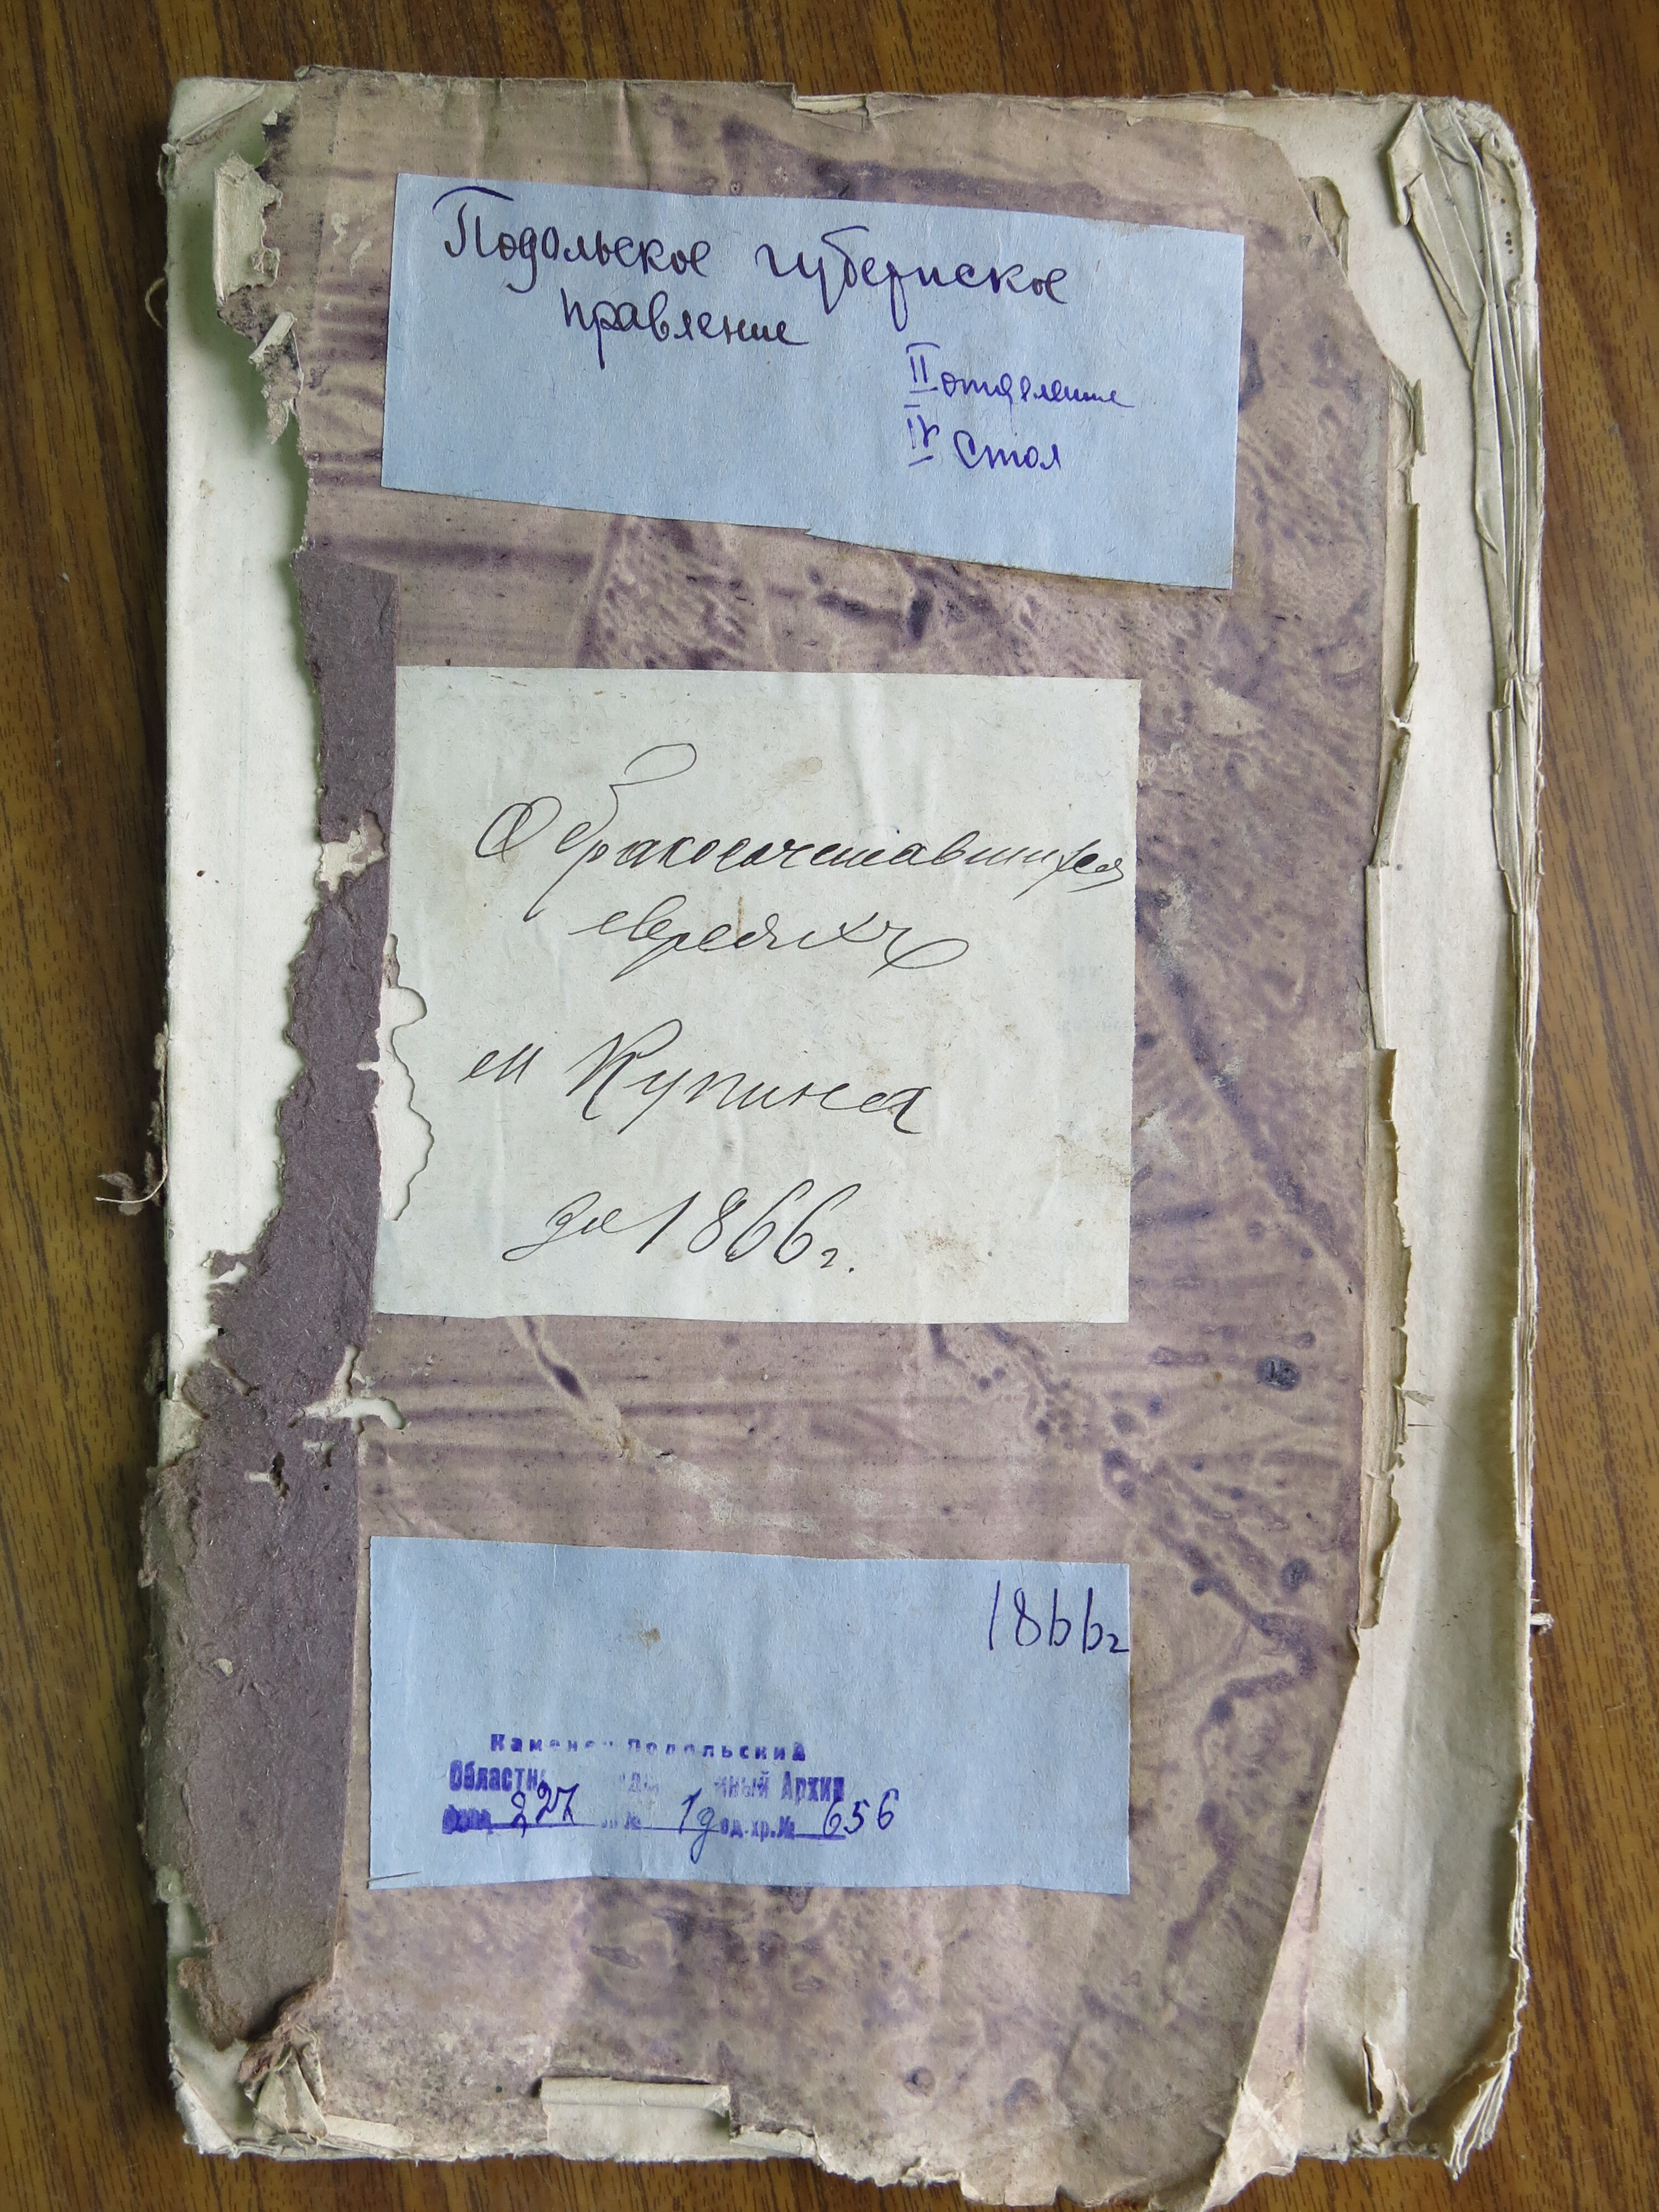 Подольское губернское
правление
II отделение
IV стол
О бракосочетавшихся
евреяхъ
м Купина
за 1866 г.
1866г
Подольский
Архив
фонд 227 1д ед.хр.№ 656